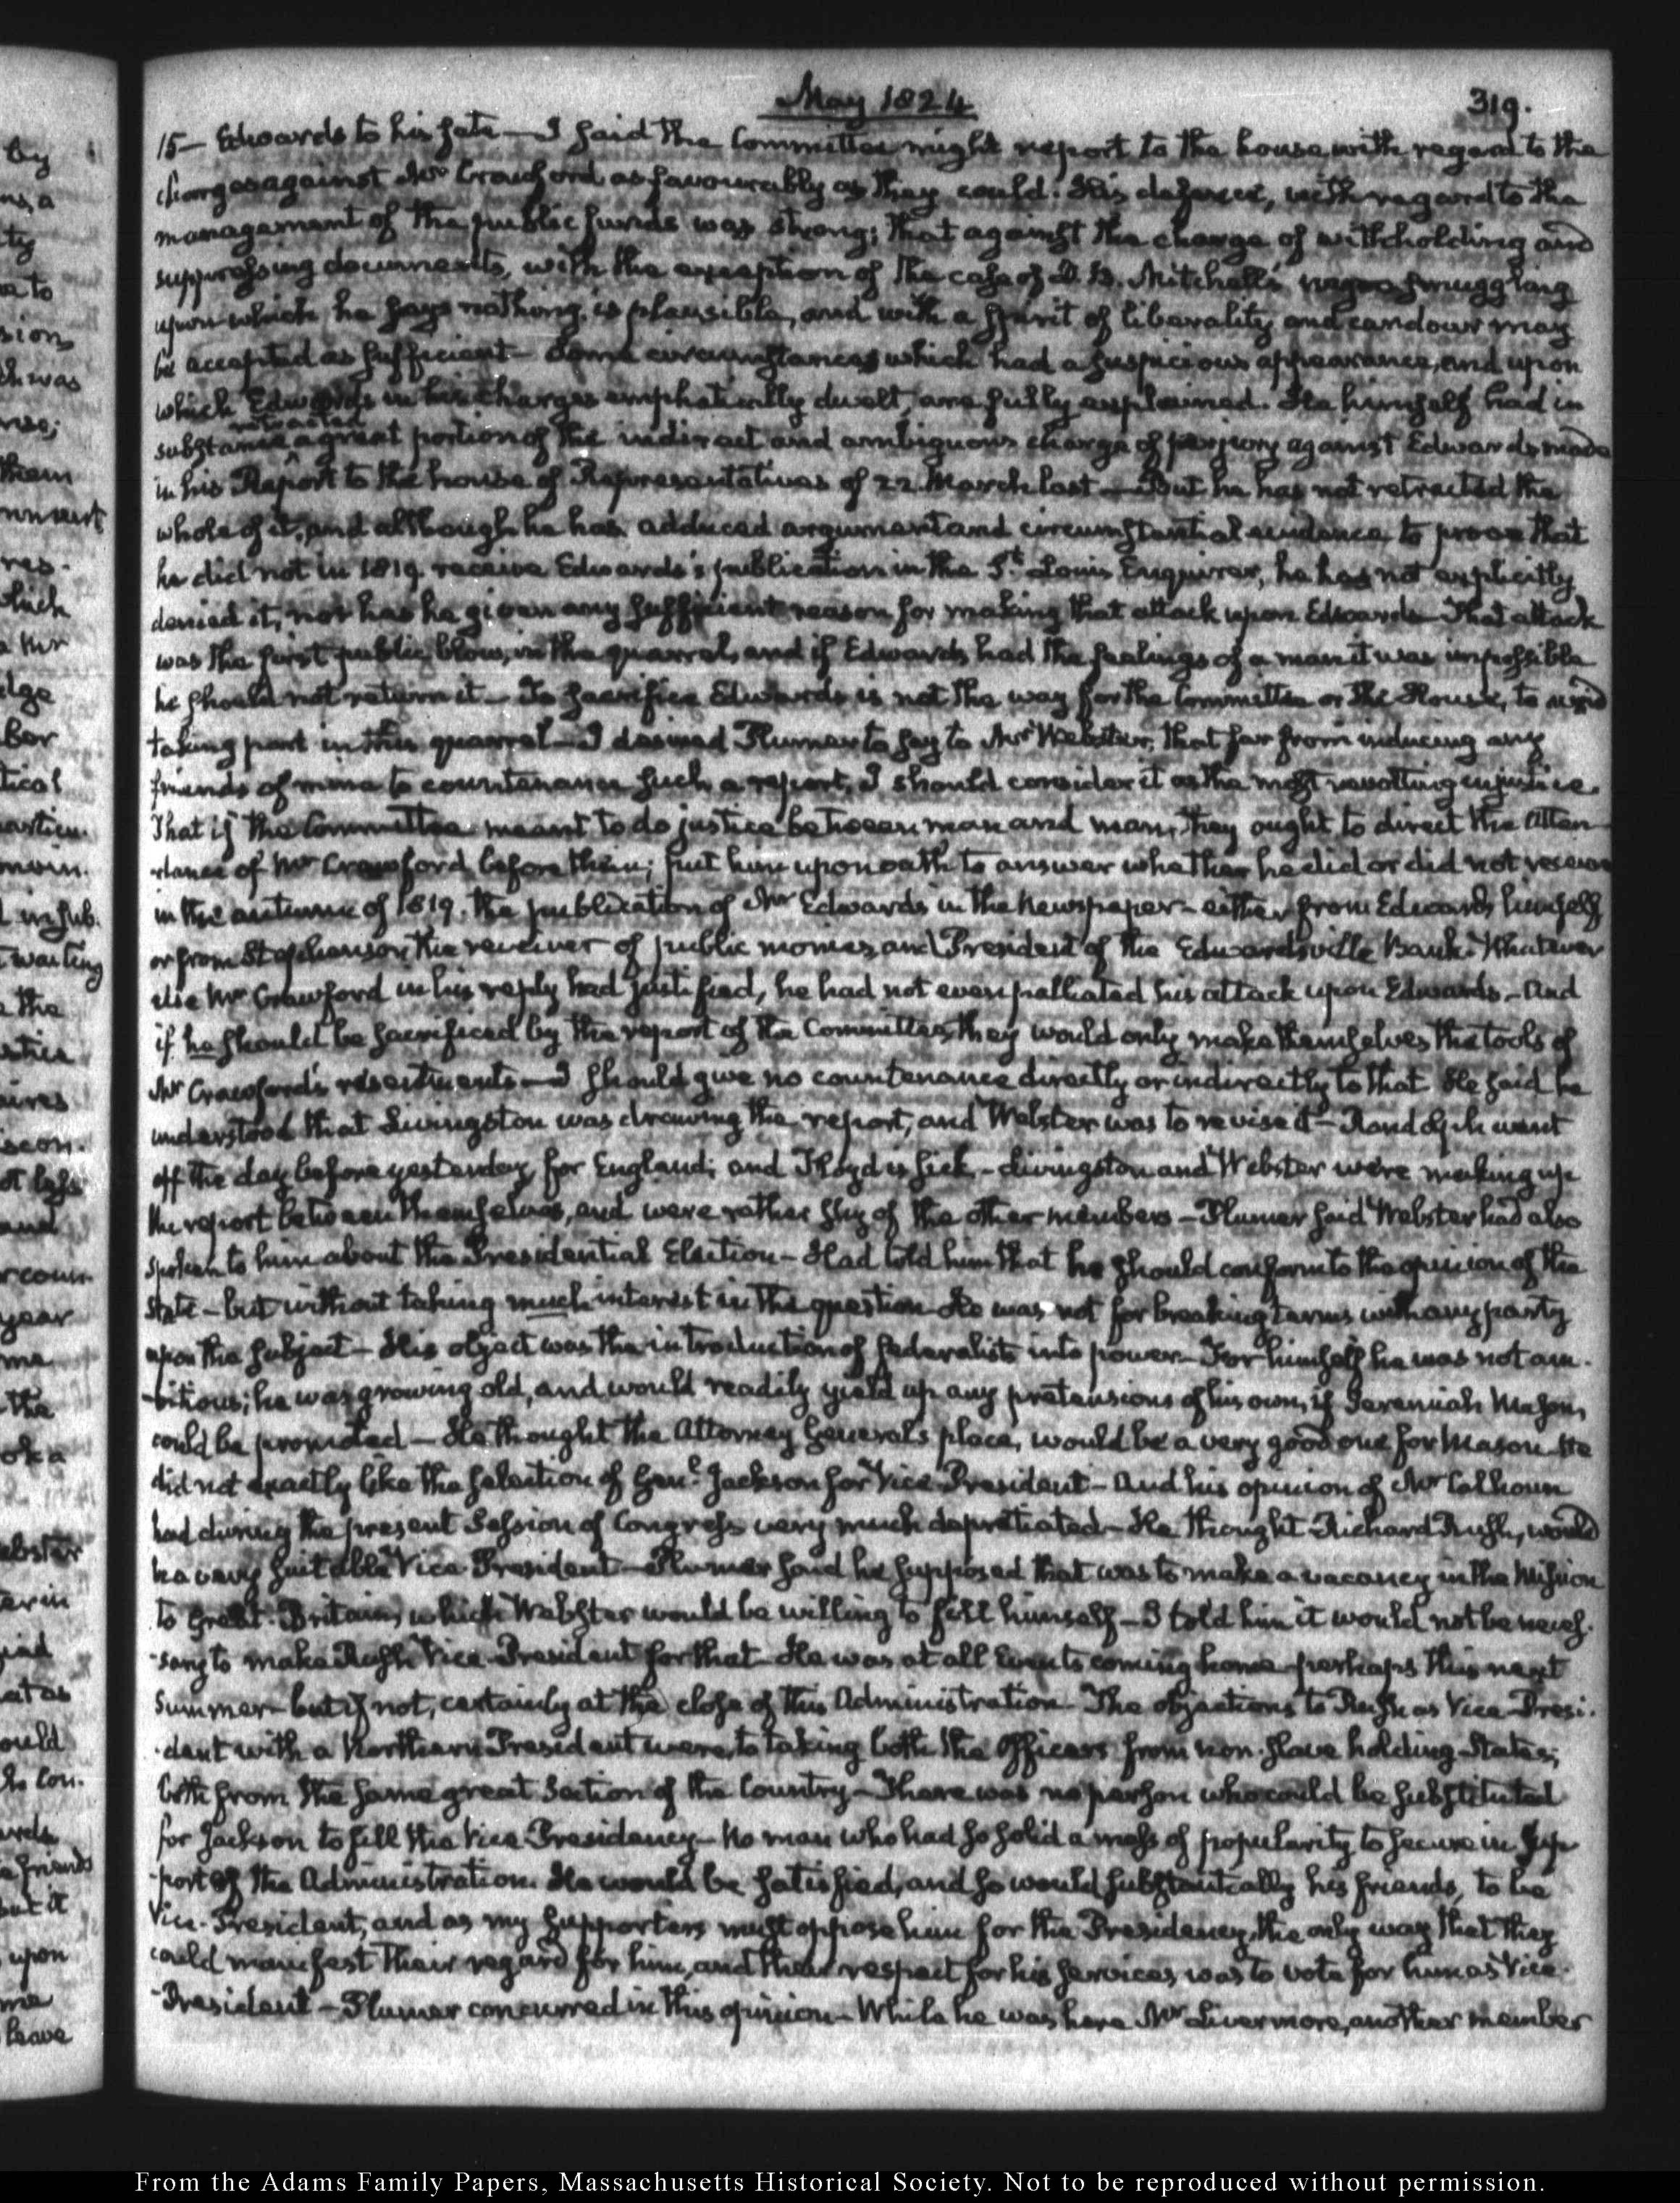 May 1824
319.
15— Edwards to his fate — I said the Committee might report to the house with regard to the
charges against Mr Crawford as favourably as they could. His defence, with regard to the
management of the public funds was strong; that against the charge of withholding and
suppressing documents, with the exception of the case of D. B. Mitchell's negro smuggling
upon which he says nothing, is plausible, and with a spirit of liberality and candour may
be accepted as sufficient — Some circumstances which had a suspicious appearance, and upon
which Edwards in his charges emphatically dwelt, are fully explained. He himself had in
retracted
substance a great portion of the indirect and ambiguous charge of perjury against Edwards made
in his Report to the house of Representatives of 22 March last — But he has not retracted the
whole of it, and although he has adduced argument and circumstantial evidence to prove that
he did not in 1819 receive Edwards's publication in the St. Louis Enquirer, he has not explicitly
denied it, nor has he given any sufficient reason for making that attack upon Edwards — That attack
was the first public blow, in the quarrel, and if Edwards had the feelings of a man it was impossible
he should not return it — To sacrifice Edwards is not the way for the Committee or the House, to avoid
taking part in this quarrel — I desired Plumer to say to Mr Webster, that far from inducing any
friends of mine to countenance such a report, I should consider it as the most revolting injustice.
That if the Committee meant to do justice between man and man, they ought to direct the atten-
-dance of Mr Crawford before them; put him upon oath to answer whether he did or did not receive
in the autumn of 1819. the publication of Mr Edwards in the newspaper — either from Edwards himself
or from Stephenson the receiver of public monies, and President of the Edwardsville Bank. Whatever
else Mr Crawford in his reply had justified, he had not even palliated his attack upon Edwards — And
if he should be sacrificed by the report of the Committee, they would only make themselves the tools of
Mr Crawford's resentments — I should give no countenance directly or indirectly to that He said he
understood that Livingston was drawing the report, and Webster was to revise it — Randolph went
off the day before yesterday for England; and Floyd is sick — Livingston and Webster were making up
the report between themselves, and were rather shy of the other members — Plumer said Webster had also
spoken to him about the Presidential Election — Had told him that he should conform to the opinion of the
State — but without taking much interest in the question He was not for breaking terms with any party
upon the subject — His object was the introduction of federalists into power — For himself he was not am-
-bitious; he was growing old, and would readily yield up any pretensions of his own, if Jeremiah Mason,
could be promoted — He thought the Attorney General's place, would be a very good one for Mason He
did not exactly like the selection of Genl. Jackson for Vice President — And his opinion of Mr Calhoun
had during the present Session of Congress very much depretiated — He thought Richard Rush, would
be a very suitable Vice President — Plumer said he supposed that was to make a vacancy in the Mission
to Great-Britain, which Webster would be willing to fill himself — I told him it would not be neces-
-sary to make Rush Vice-President for that He was at all Events coming home — perhaps this next
Summer — but if not, certainly at the close of this Administration — The objections to Rush as Vice-Presi-
-dent with a Northern President were, to taking both the Officers from non-slave holding States;
both from the same great Section of the Country — There was no person who could be substituted
for Jackson to fill the Vice Presidency — No man who had so solid a mass of popularity to secure in sup-
-port of the Administration. He would be satisfied, and so would substantially his friends, to be
Vice-President, and as my supporters must oppose him for the Presidency, the only way that they
could manifest their regard for him, and their respect for his services, was to vote for him as Vice-
-President — Plumer concurred in this opinion — While he was here Mr Livermore, another member
From the Adams Family Papers, Massachusetts Historical Society. Not to be reproduced without permission.